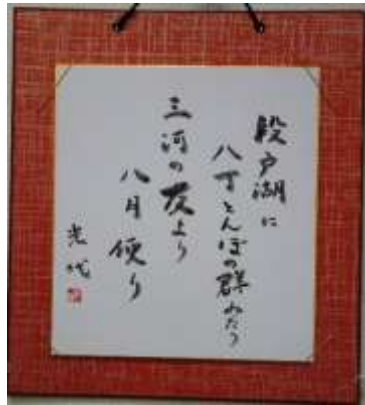 段戸湖に
八丁とんぼの群みたつ
三河の友より
八月便り
光代